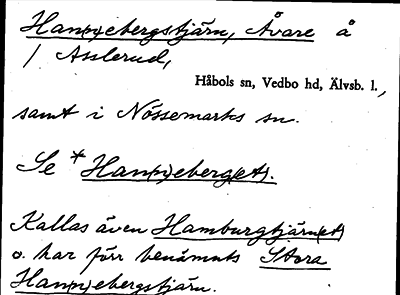 Han(n)ebergstjärn, Övare å
/ Asslerud,
Håbols sn, Vedbo hd, Älvsb. l.,
samt i Nössemarks sn.
Se *Han(n)eberg(et).
Kallas även Hamburgtjärn(et)
o. har förr benämnts Stora
Han(n)ebergstjärn.